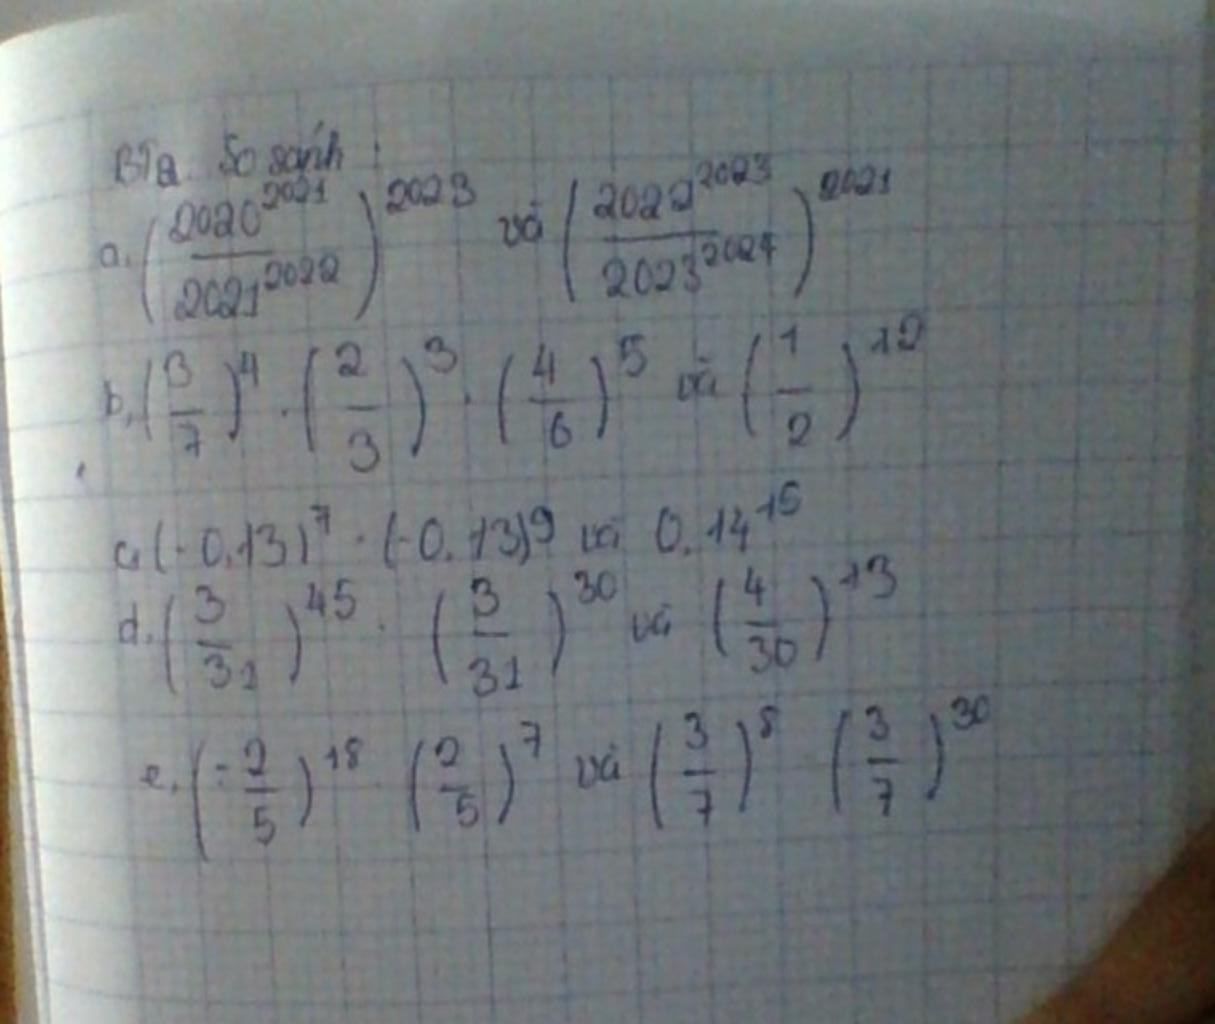 BT2. So sánh:
a. (2020^2021 / 2021^2022)^2023 và (2022^2023 / 2023^2024)^2021
b, (3/7)^4 . (2/3)^3 . (4/6)^5 và (1/2)^12
c, (-0,13)^7 . (-0,13)^9 và 0,14^15
d. (3/31)^45 . (3/31)^30 và (4/30)^13
e. (-2/5)^18 . (2/5)^7 và (3/7)^8 . (3/7)^30